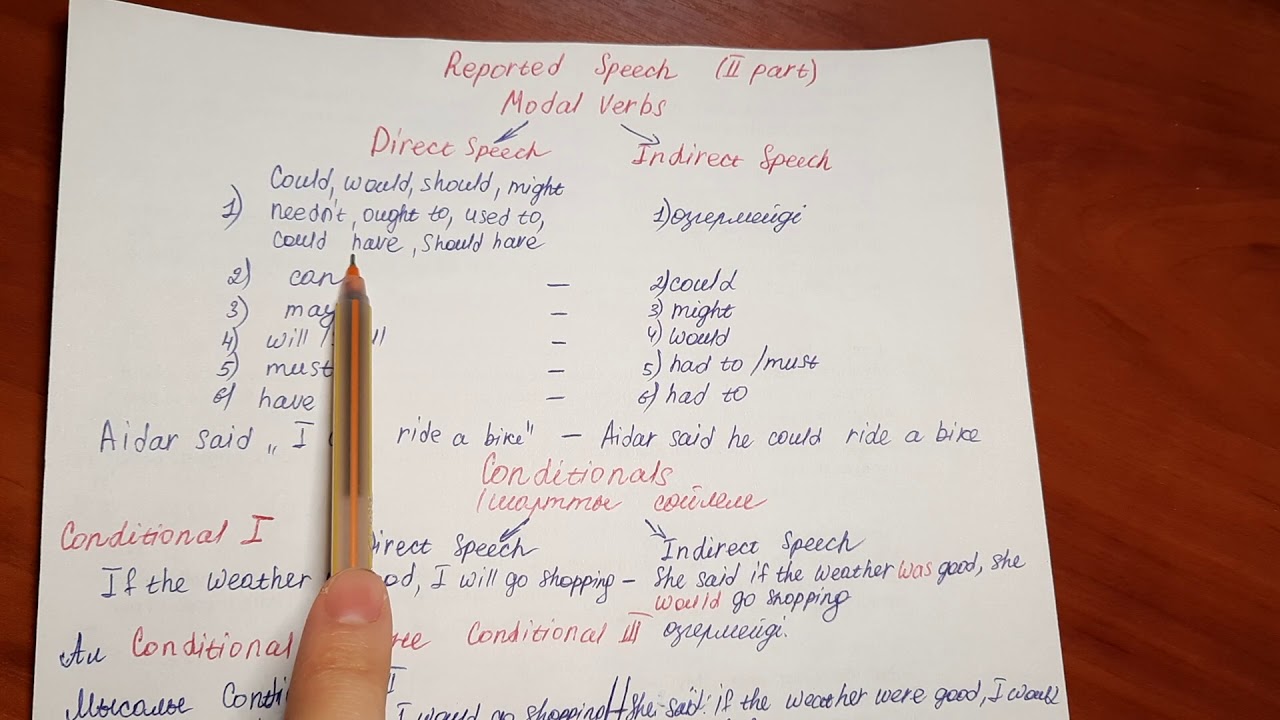 Reported Speech (II part)
Modal Verbs
Direct Speech Indirect Speech
Could, would, should, might
1) needn't, ought to, used to, 1) өзгермейді
could have, should have
2) can — 2) could
3) may — 3) might
4) will / — 4) would
5) must — 5) had to / must
6) have — 6) had to
Aidar said „I ride a bike" — Aidar said he could ride a bike
Conditionals
(шартты сөйлем
Conditional I Direct Speech Indirect Speech
If the weather I will go shopping – She said if the weather was good, she
would go shopping
Ал Conditional Conditional III өзгермейді.
Мысалы II She said: if the weather were good, I would
I would go shopping